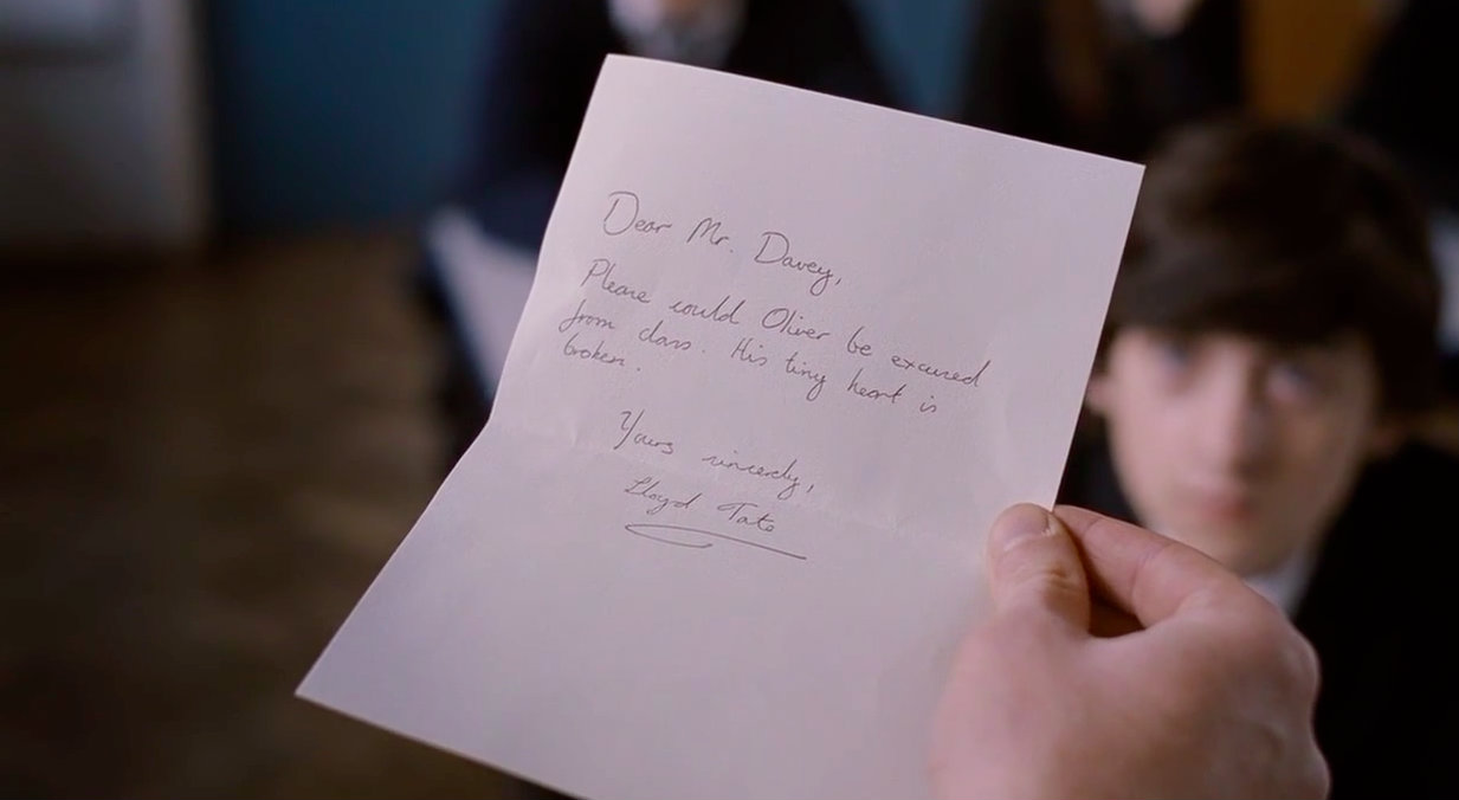 Dear Mr. Davey,
Please could Oliver be excused
from class. His tiny heart is
broken.
Yours sincerely,
Lloyd Tate